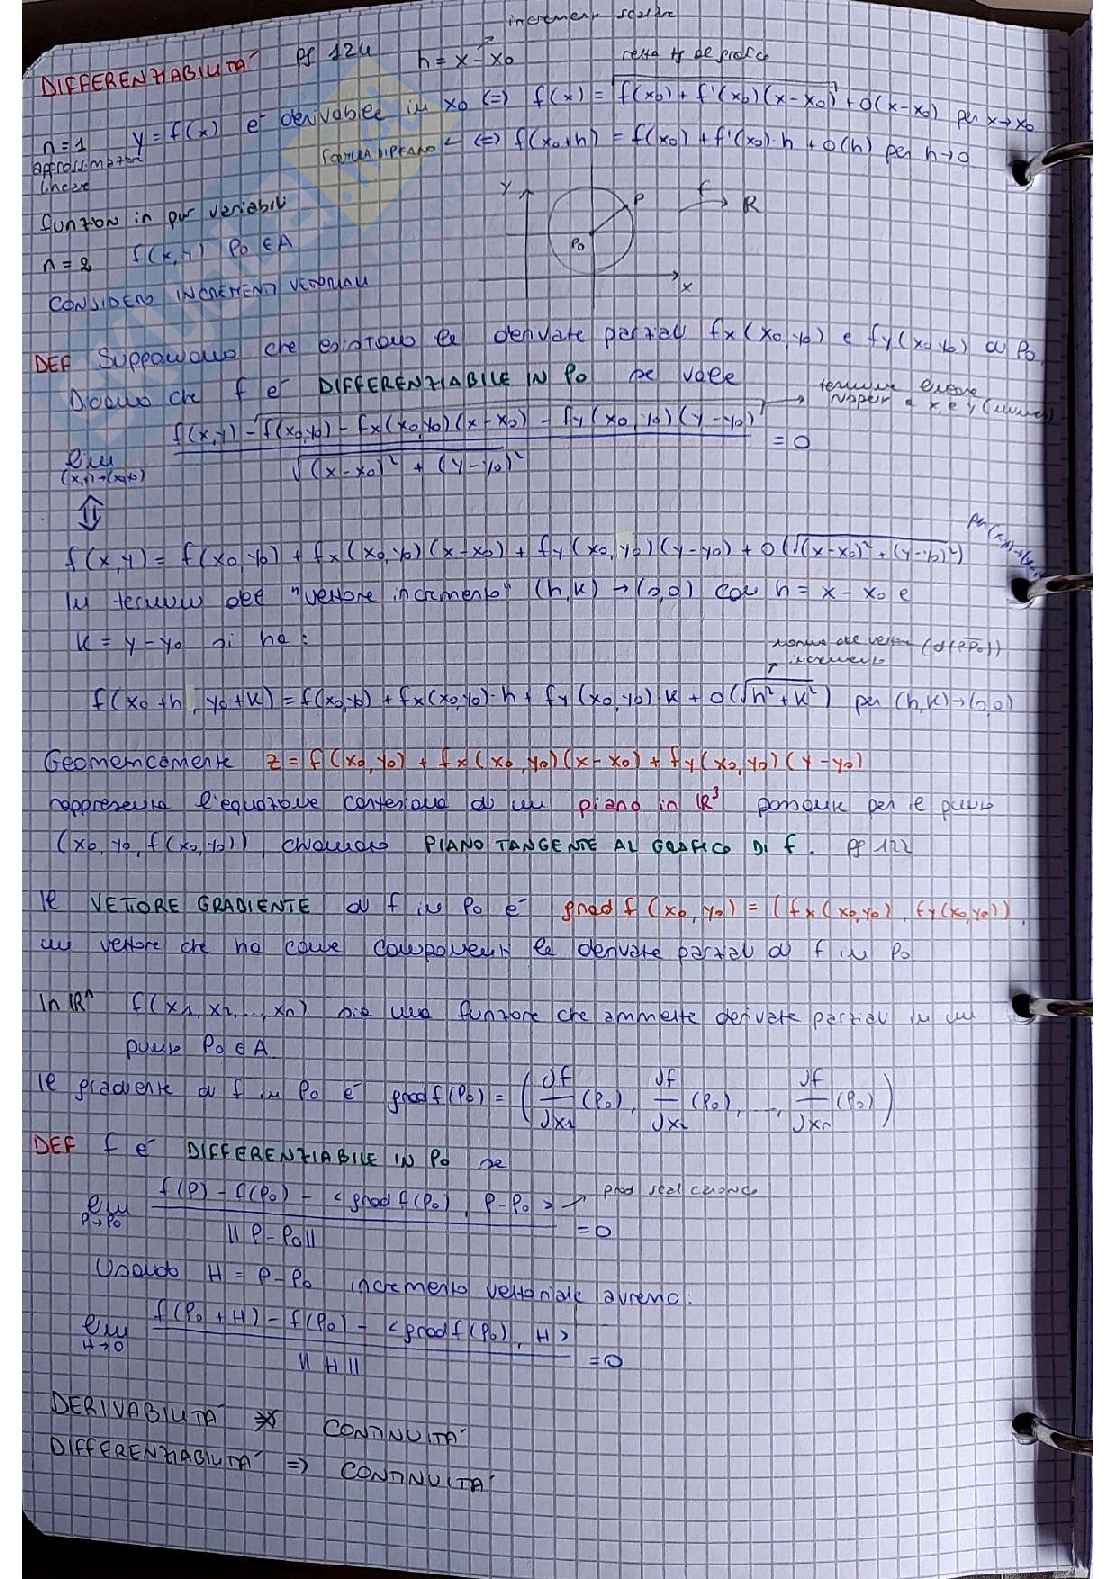 incrementi scalare
DIFFERENZIABILITÁ pg 124 h = x - x0 retta tg al grafico
n=1 y = f(x) é derivabile in x0 <=> f(x) = f(x0) + f'(x0)(x-x0) + o(x-x0) per x→x0
approssimazione <=> f(x0+h) = f(x0) + f'(x0)·h + o(h) per h→0
lineare
funzioni in piú variabili
Y P f → R
n=2 f(x,y) P0 ∈ A P0
CONSIDERO INCREMENTI VETTORIALI x
DEF Supponiamo che esistano le derivate parziali fx(x0,y0) e fy(x0,y0) di P0
Diciamo che f é DIFFERENZIABILE IN P0 se vale
termine lineare
rispetto a x e y
lim (x,y)→(x0,y0) f(x,y) - f(x0,y0) - fx(x0,y0)(x-x0) - fy(x0,y0)(y-y0) / √(x-x0)² + (y-y0)² = 0
⇕
f(x,y) = f(x0,y0) + fx(x0,y0)(x-x0) + fy(x0,y0)(y-y0) + o(√(x-x0)² + (y-y0)²)
In termini del "vettore incremento" (h,k) → (0,0) con h = x - x0 e
k = y - y0 si ha:
norma del vettore (d(PP0))
incremento
f(x0+h, y0+k) = f(x0,y0) + fx(x0,y0)·h + fy(x0,y0)k + o(√h²+k²) per (h,k)→(0,0)
Geometricamente z = f(x0,y0) + fx(x0,y0)(x-x0) + fy(x0,y0)(y-y0)
rappresenta l'equazione cartesiana di un piano in ℝ³ passante per il punto
(x0, y0, f(x0,y0)) chiamato PIANO TANGENTE AL GRAFICO DI f. pg 122
Il VETTORE GRADIENTE di f in P0 é grad f(x0,y0) = (fx(x0,y0), fy(x0,y0)),
un vettore che ha come componenti le derivate parziali di f in P0
In ℝⁿ f(x1, x2, ..., xn) sia una funzione che ammette derivate parziali in un
punto P0 ∈ A
Il gradiente di f in P0 é grad f(P0) = (∂f/∂x1 (P0), ∂f/∂x2 (P0), ..., ∂f/∂xn (P0))
DEF f é DIFFERENZIABILE IN P0 se
lim P→P0 f(P) - f(P0) - <grad f(P0), P-P0> / ||P-P0|| = 0 → prod scal canonico
Usando H = P-P0 incremento vettoriale avremo:
lim H→0 f(P0+H) - f(P0) - <grad f(P0), H> / ||H|| = 0
DERIVABILITÁ ⇏ CONTINUITÁ
DIFFERENZIABILITÁ => CONTINUITÁ